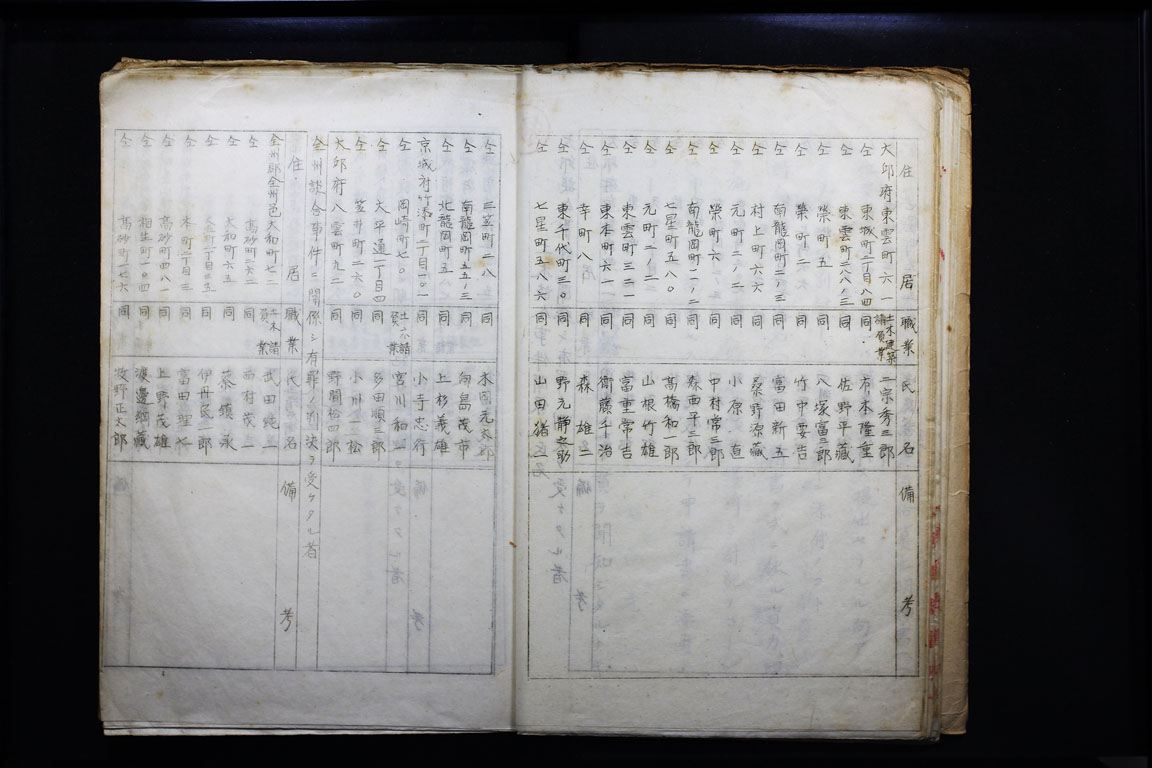 住居 職業 氏名 備考
大邱府東雲町六一 土木建築請負業 二宗秀三郎
仝 東城町二丁目八四 同 市本隆重
仝 東雲町二八八ノ三 同 佐野平藏
仝 榮町五 同 八塚富三郎
仝 榮町二六 同 竹中要吉
仝 南龍岡町二ノ三 同 富田新五
仝 村上町六六 同 桑野源藏
仝 元町二ノ二 同 小原直
仝 榮町六二 同 中村常三郎
仝 南龍岡町一一ノ二 同 森西平三郎
仝 七星町五八〇 同 髙橋和一郎
仝 元町二ノ二 同 山根竹雄
仝 東雲町三二一 同 富重常吉
仝 東本町六一 同 衛藤千治
仝 幸町八 同 森雄二
仝 東千代町三〇 同 野元靜之助
仝 七星町五八六 同 山田猪
仝 三笠町二八 同 木國元太郎
仝 南龍岡町五五ノ三 同 向島茂市
仝 北龍岡町五八 同 上杉義雄
京城府竹添町二丁目一〇一 同 小寺忠行
仝 岡崎町七〇 土木請負業 宮川和一
仝 太平通一丁目四 同 多田順三郎
仝 笠井町二六〇 同 小川一松
大邱府八雲町九二 同 野間捨四郎
全州談合事件ニ關係シ有罪ノ判決ヲ受ケタル者
住居 職業 氏名 備考
全州郡全州邑大和町七二 土木請負業 武田純一
仝 髙砂町二六五 同 西村茂二
仝 大和町六五 同 蔡鎮承
仝 同 伊丹辰一郎
仝 本町二丁目三 同 富田理
仝 髙砂町四八一 同 上野茂雄
仝 相生町一〇四 同 渡邊綱藏
仝 髙砂町一七六 同 牧野正太郎